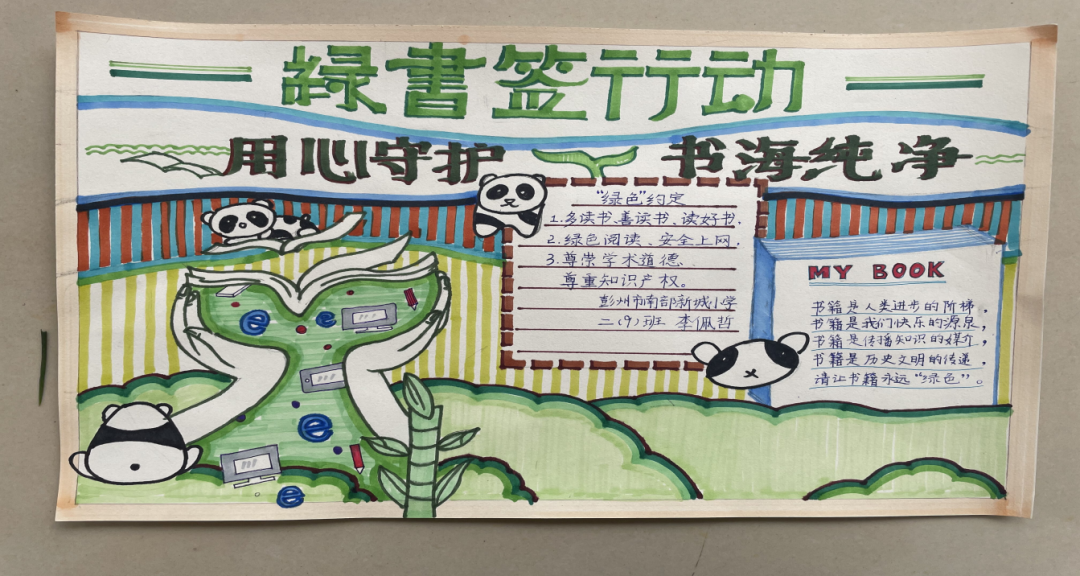 绿書签行动
用心守护 书海纯净
“绿色”约定
1.多读书、善读书、读好书.
2.绿色阅读、安全上网.
3.尊崇学术道德.
尊重知识产权。
彭州市南部新城小学
二(9)班 李佩哲
MY BOOK
书籍是人类进步的阶梯,
书籍是我们快乐的源泉,
书籍是传播知识的媒介,
书籍是历史文明的传递,
请让书籍永远“绿色”。